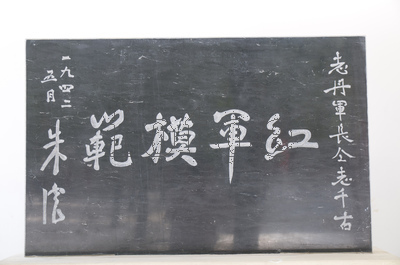 志丹軍長仝志千古
红軍模範
一九四二
五月
朱德